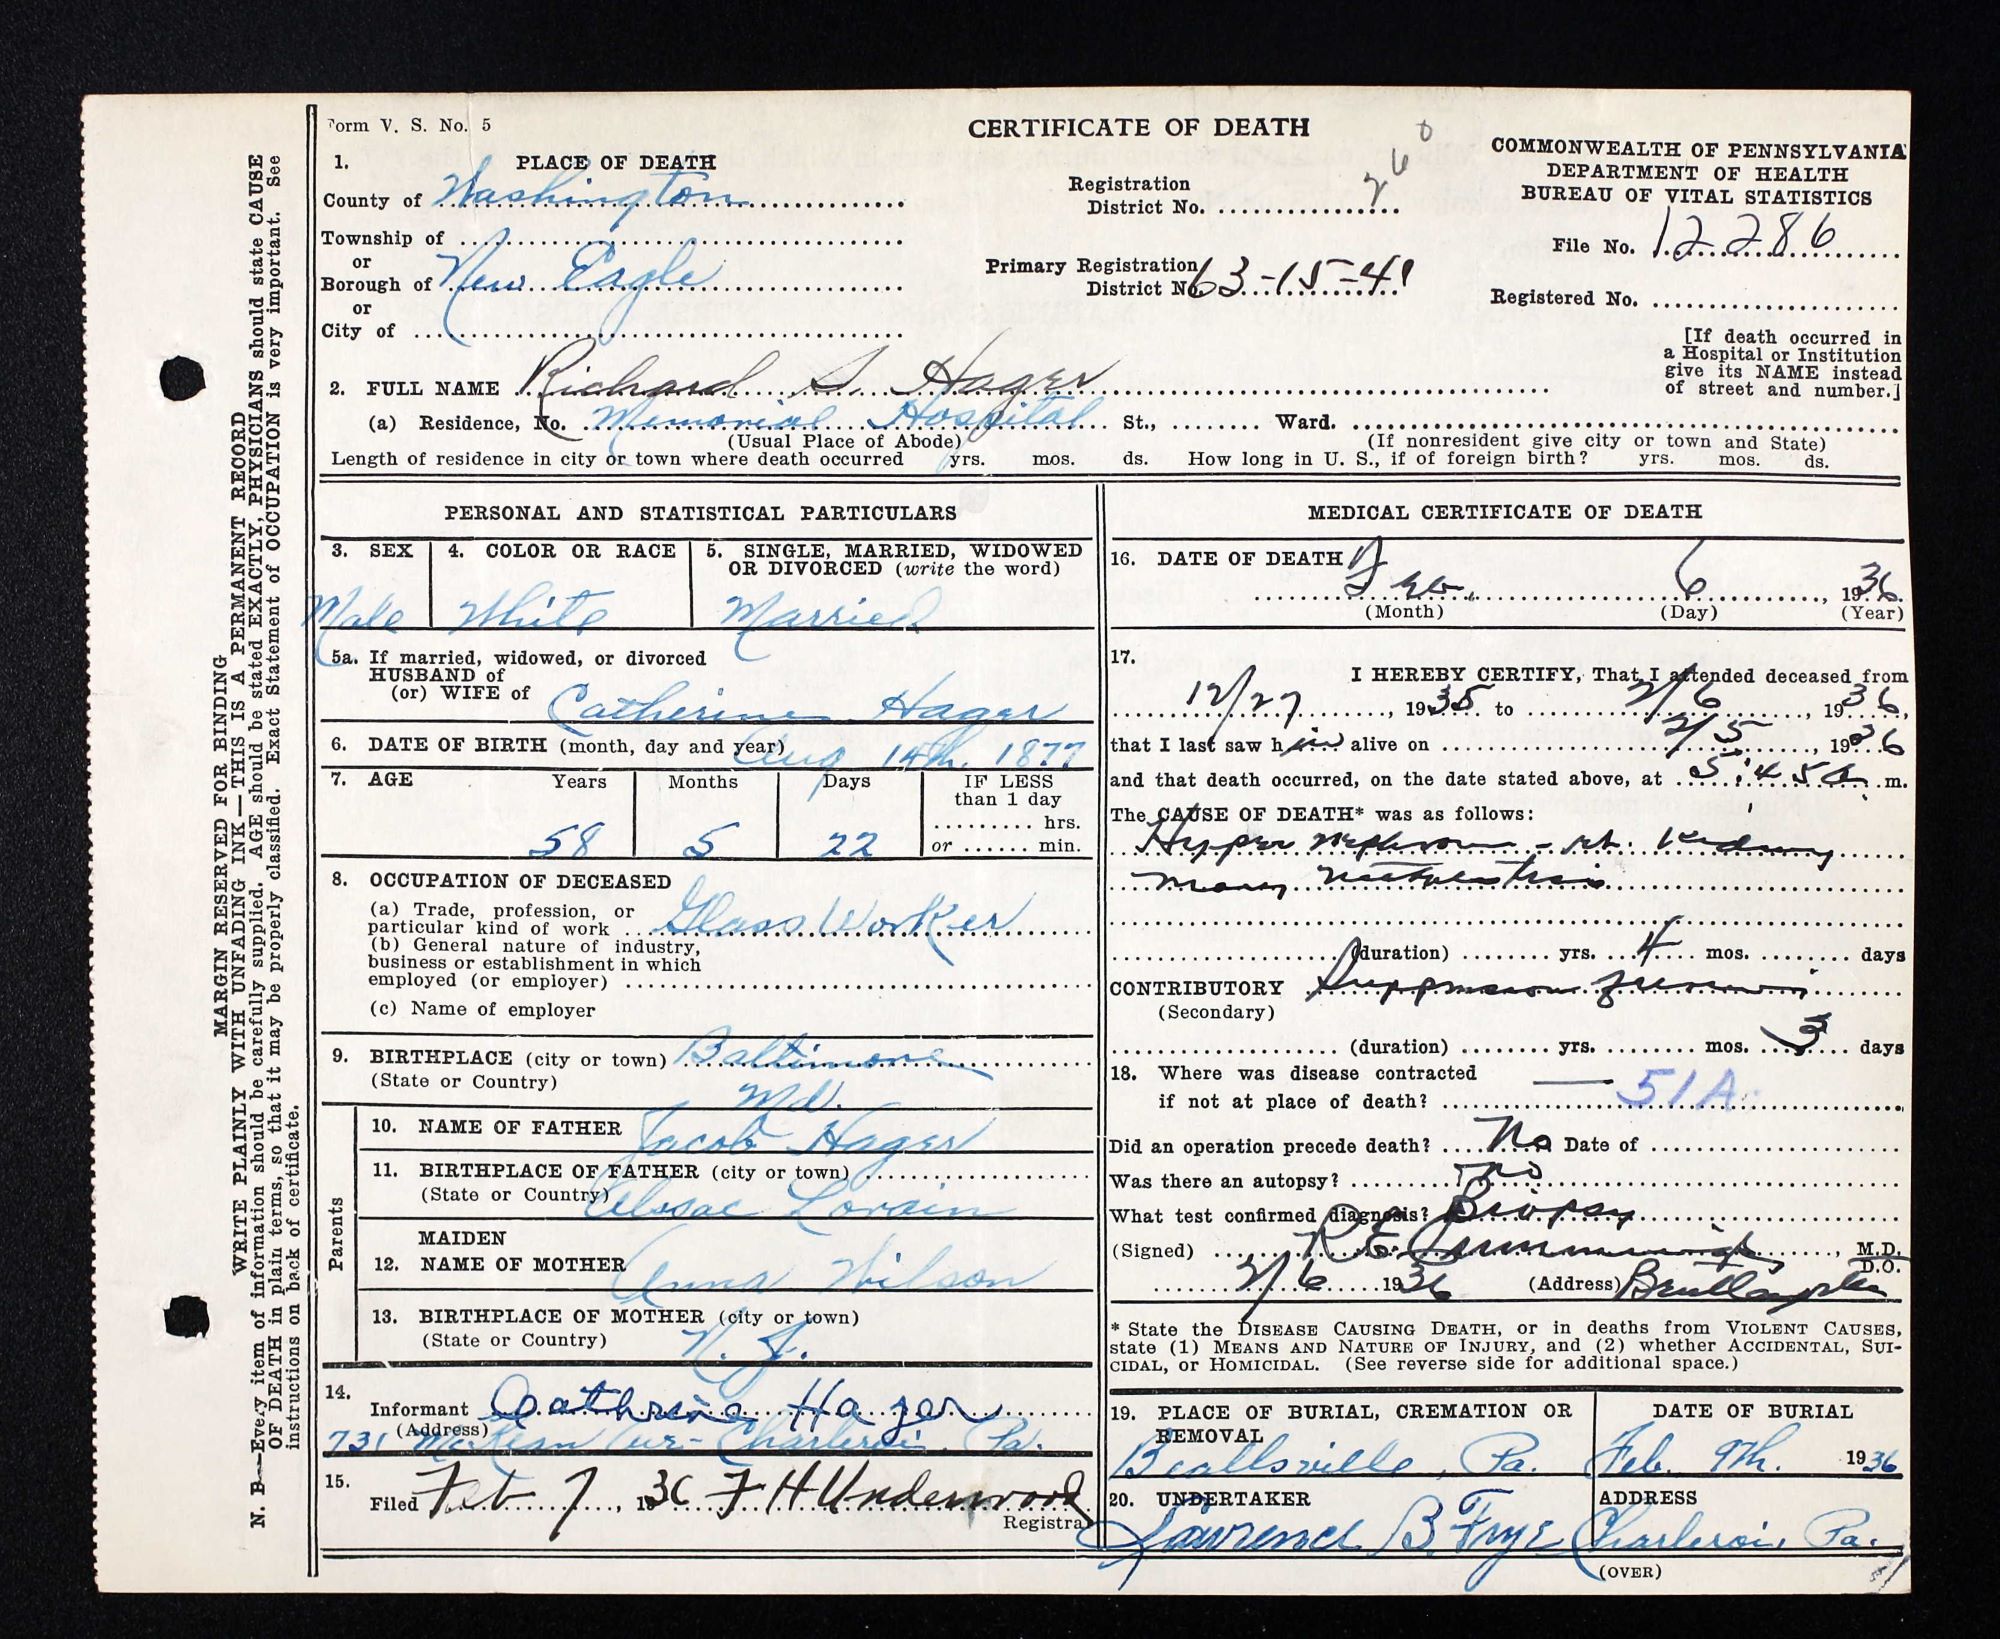 Form V. S. No. 5
CERTIFICATE OF DEATH
COMMONWEALTH OF PENNSYLVANIA
DEPARTMENT OF HEALTH
BUREAU OF VITAL STATISTICS
File No. 12286
Registered No.
[If death occurred in
a Hospital or Institution
give its NAME instead
of street and number.]
Registration
District No. 260
Primary Registration
District No. 63-15-41
1. PLACE OF DEATH
County of Washington
Township of
or
Borough of New Eagle
or
City of
2. FULL NAME Richard S. Hager
(a) Residence, No. Memorial Hospital St., Ward.
(Usual Place of Abode) (If nonresident give city or town and State)
Length of residence in city or town where death occurred yrs. mos. ds. How long in U. S., if of foreign birth? yrs. mos. ds.
PERSONAL AND STATISTICAL PARTICULARS
3. SEX 4. COLOR OR RACE 5. SINGLE, MARRIED, WIDOWED
OR DIVORCED (write the word)
Male White Married
5a. If married, widowed, or divorced
HUSBAND of
(or) WIFE of Catherine Hager
6. DATE OF BIRTH (month, day and year) Aug 14th. 1877
7. AGE Years Months Days IF LESS
than 1 day
hrs.
or min.
58 5 22
8. OCCUPATION OF DECEASED
(a) Trade, profession, or
particular kind of work Glass Worker
(b) General nature of industry,
business or establishment in which
employed (or employer)
(c) Name of employer
9. BIRTHPLACE (city or town) Baltimore
(State or Country) Md.
Parents
10. NAME OF FATHER Jacob Hager
11. BIRTHPLACE OF FATHER (city or town)
(State or Country) Alssac Lorain
MAIDEN
12. NAME OF MOTHER Anna Wilson
13. BIRTHPLACE OF MOTHER (city or town)
(State or Country) N. J.
14.
Informant Cathrine Hager
(Address)
731 McKean Ave - Charleroi, Pa.
15.
Filed Feb 7, 1936 F H Underwood
Registrar
MEDICAL CERTIFICATE OF DEATH
16. DATE OF DEATH
Feb. 6, 1936
(Month) (Day) (Year)
17.
I HEREBY CERTIFY, That I attended deceased from
12/27, 1935 to 2/6, 1936,
that I last saw him alive on 2/5, 1936
and that death occurred, on the date stated above, at 5:45 a. m.
The CAUSE OF DEATH* was as follows:
Hyper nephroma - rt. Kidney
many metastasis
(duration) yrs. 4 mos. days
CONTRIBUTORY Suppression of urine
(Secondary)
(duration) yrs. mos. 3 days
18. Where was disease contracted
if not at place of death? 51A.
Did an operation precede death? No Date of
Was there an autopsy? no
What test confirmed diagnosis? Biopsy
(Signed) R.E., M.D.
D.O.
2/6 1936 (Address)
* State the DISEASE CAUSING DEATH, or in deaths from VIOLENT CAUSES,
state (1) MEANS AND NATURE OF INJURY, and (2) whether ACCIDENTAL, SUI-
CIDAL, or HOMICIDAL. (See reverse side for additional space.)
19. PLACE OF BURIAL, CREMATION OR
REMOVAL
Beallsville, Pa.
DATE OF BURIAL
Feb. 9th. 1936
20. UNDERTAKER
Lawrence B. Frye
ADDRESS
Charleroi, Pa.
(OVER)
MARGIN RESERVED FOR BINDING
WRITE PLAINLY WITH UNFADING INK—THIS IS A PERMANENT RECORD
N. B.—Every item of information should be carefully supplied. AGE should be stated EXACTLY, PHYSICIANS should state CAUSE
OF DEATH in plain terms, so that it may be properly classified. Exact Statement of OCCUPATION is very important. See
instructions on back of certificate.